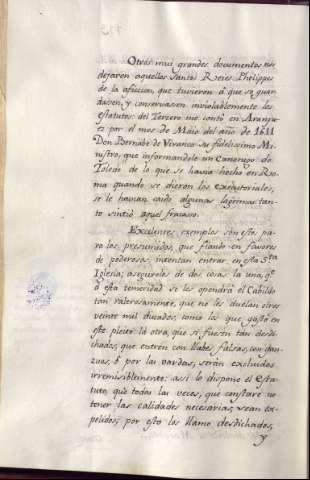 Otros mui grandes documentos nos
dejaron aquellos Santos Reies Phelippes
de la aficion, que tuvieron á que se guar
dasen, y conservasen inviolablemente los
estatutos del Tercero me contó en Aranju
ez por el mes de Maio del año de 1611
Don Bernabé de Vivanco su fidelissimo Mi
nistro, que informandole un Canonigo de
Toledo de lo que se havia hecho en Ro
ma quando se dieron los executoriales,
se le havian caido algunas lagrimas: tan
to sintió aquel fracaso.
Excelentes exemplos son estos pa
ra los presumidos, que fiando en favores
de poderosos, intentan entrar en esta Sta
Iglesia; asegurolos de dos cosas: la una, qe
á esta temeridad se les opondrá el Cabildo
tan valerosamente, que no les duelan otros
veinte mil ducados, como los que gastó en
este pleito: la otra, que si fuesen tan desdi
chados, que entren con llabes falsas, con gan
zuas, ó por las vardas, serán excluidos
irremisiblemente: asi lo dispone el Esta
tuto, que todas las veces, que constare no
tener las calidades necesarias, sean ex
pelidos; por esto los llamo desdichados,
y